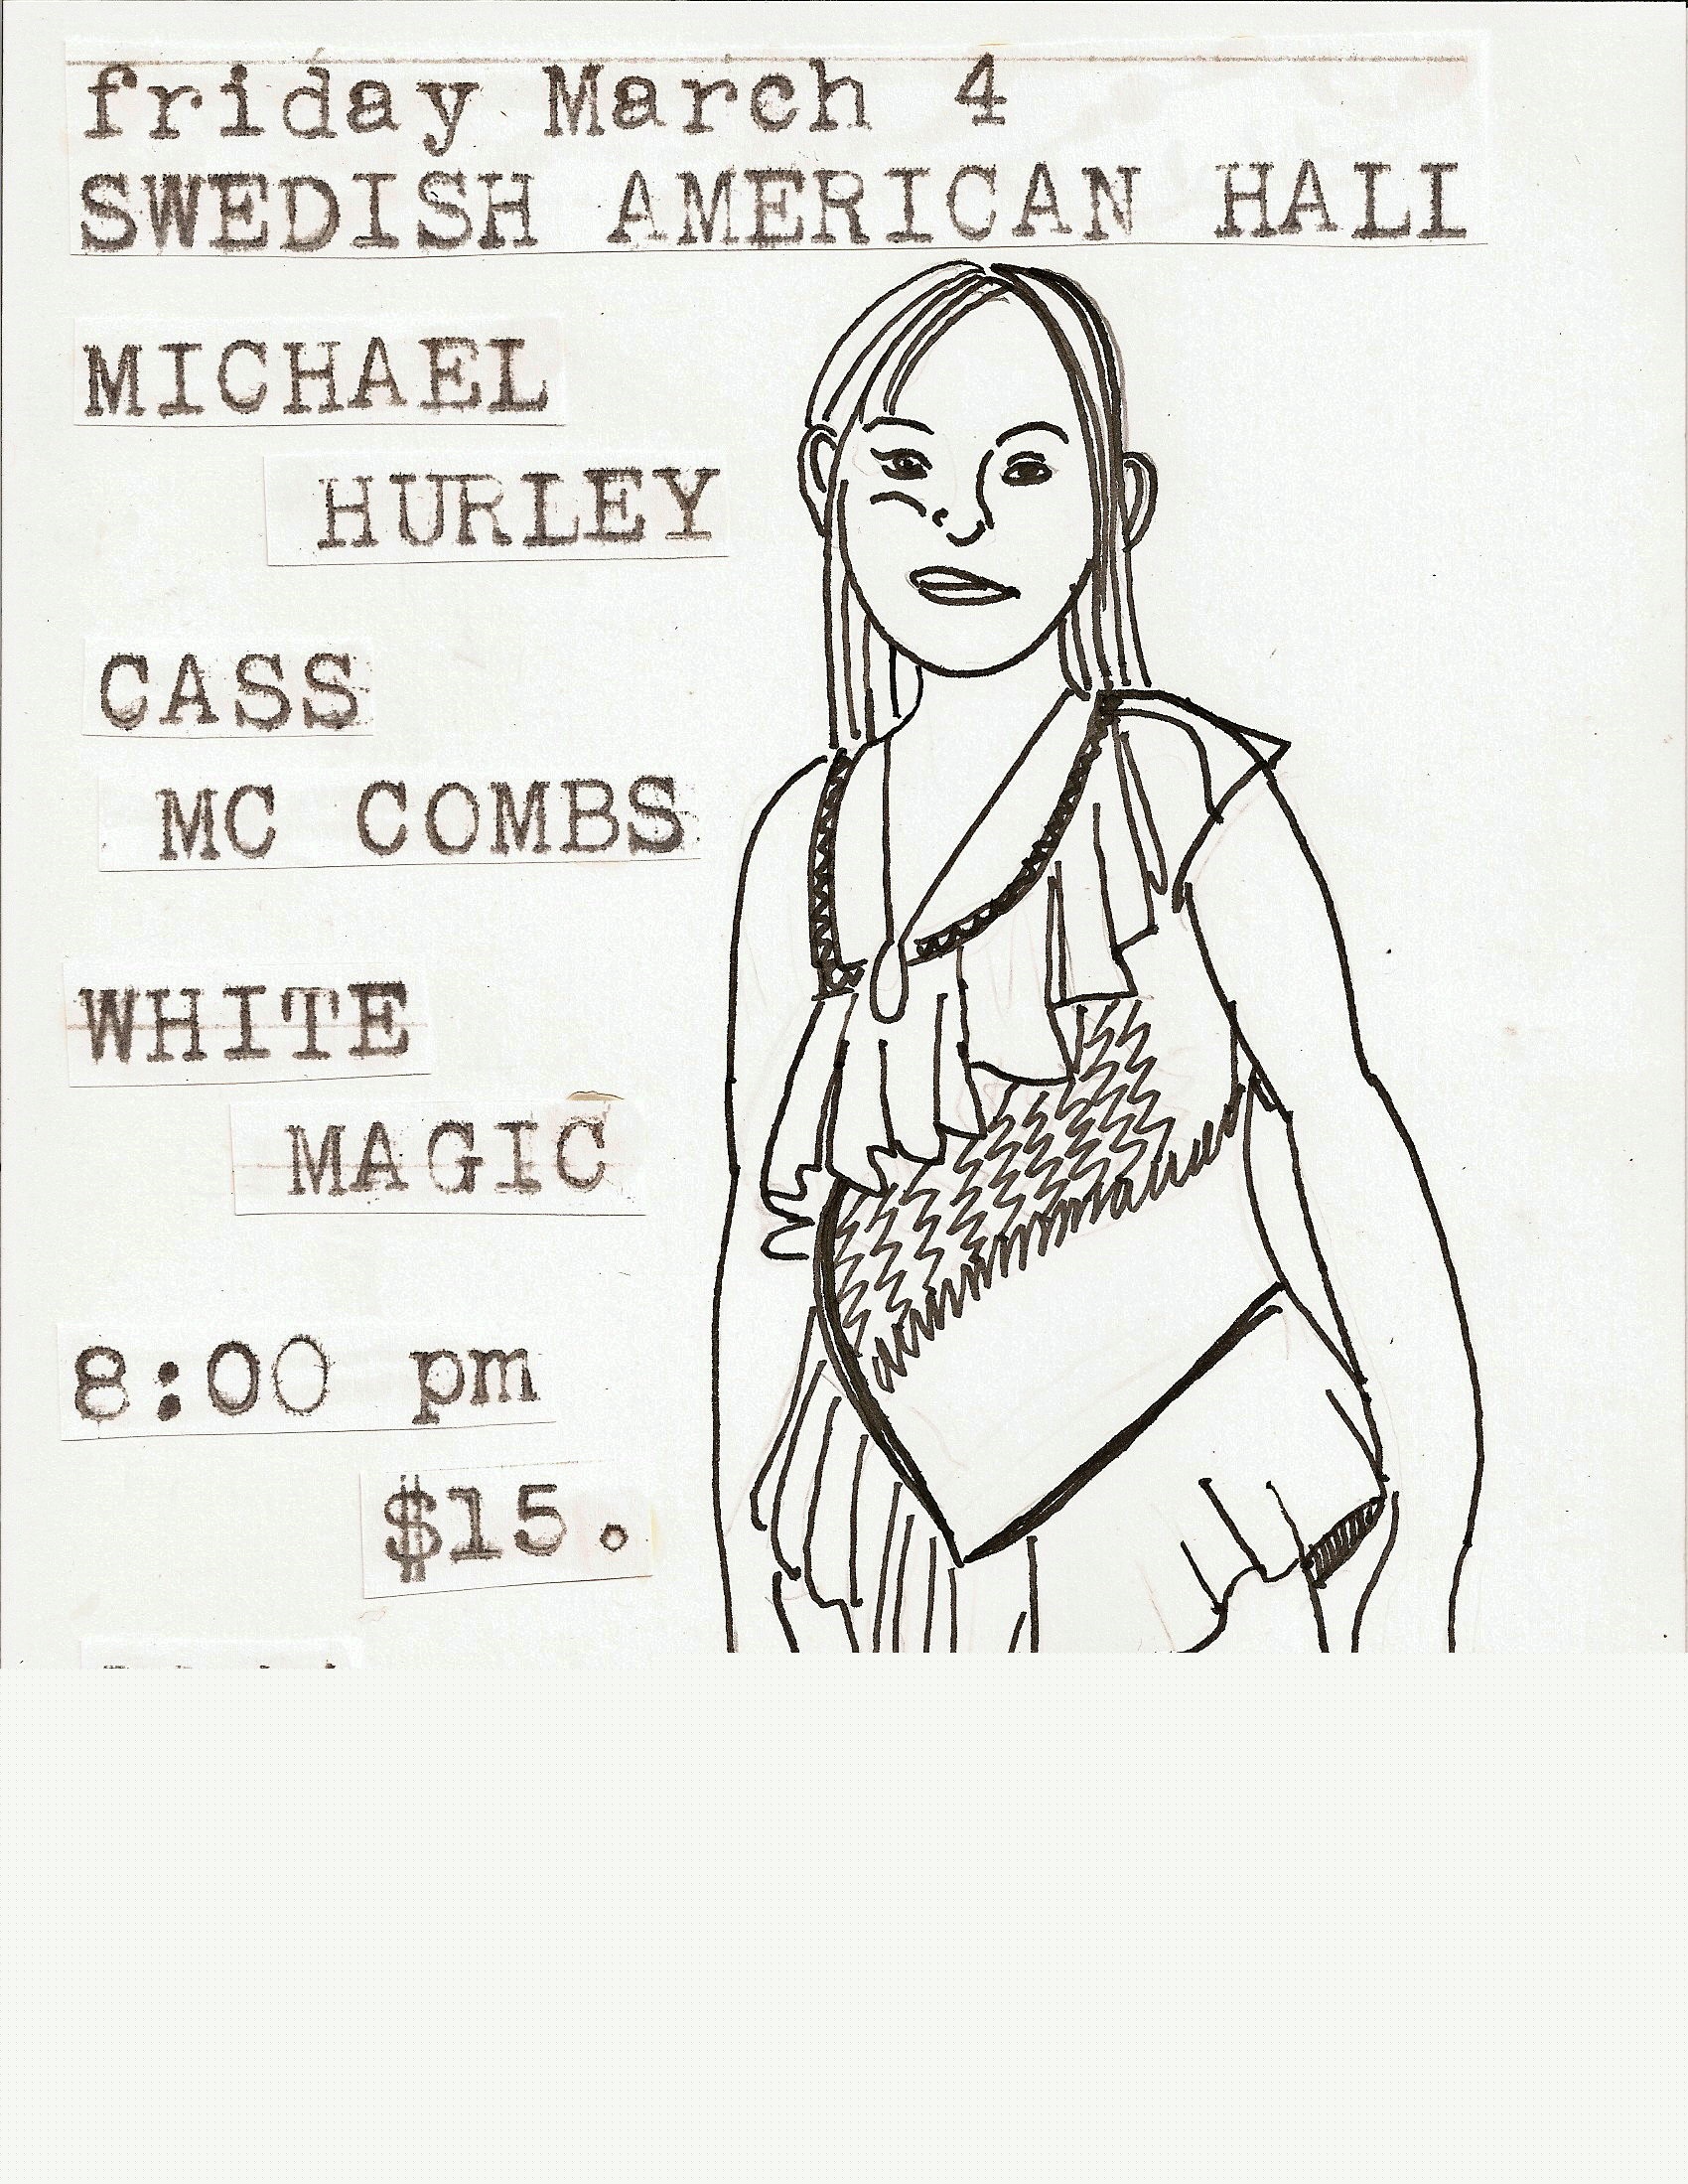 friday March 4
SWEDISH AMERICAN HALL
MICHAEL
HURLEY
CASS
MC COMBS
WHITE
MAGIC
8:00 pm
$15.